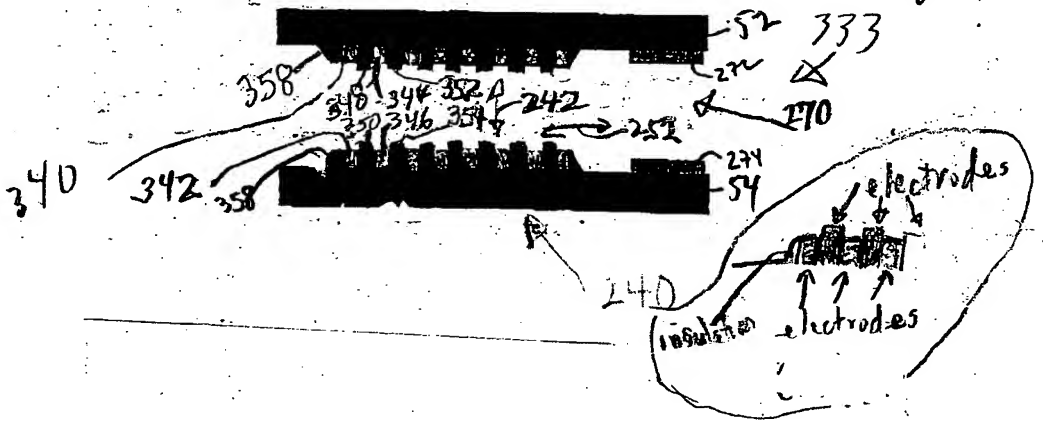 52
333
272
358
348 344 352
242
270
350 346 354
252
340
342
358
274
54
electrodes
240
insulation
electrodes